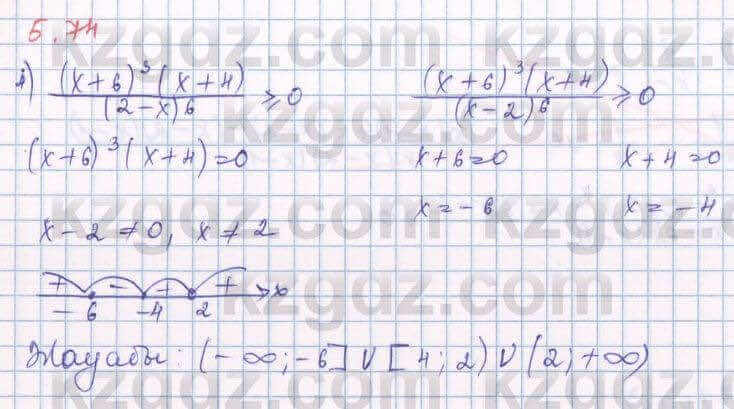 5.74
1) (x+6)³(x+4)/(2-x)⁶ ≥ 0    (x+6)³(x+4)/(x-2)⁶ ≥ 0
(x+6)³(x+4)=0    x+6=0    x+4=0
x=-6    x=-4
x-2≠0, x≠2
+ - + + x
-6 -4 2
Жауабы: (-∞;-6] ∪ [4;2) ∪ (2;+∞)
kzgdz.com